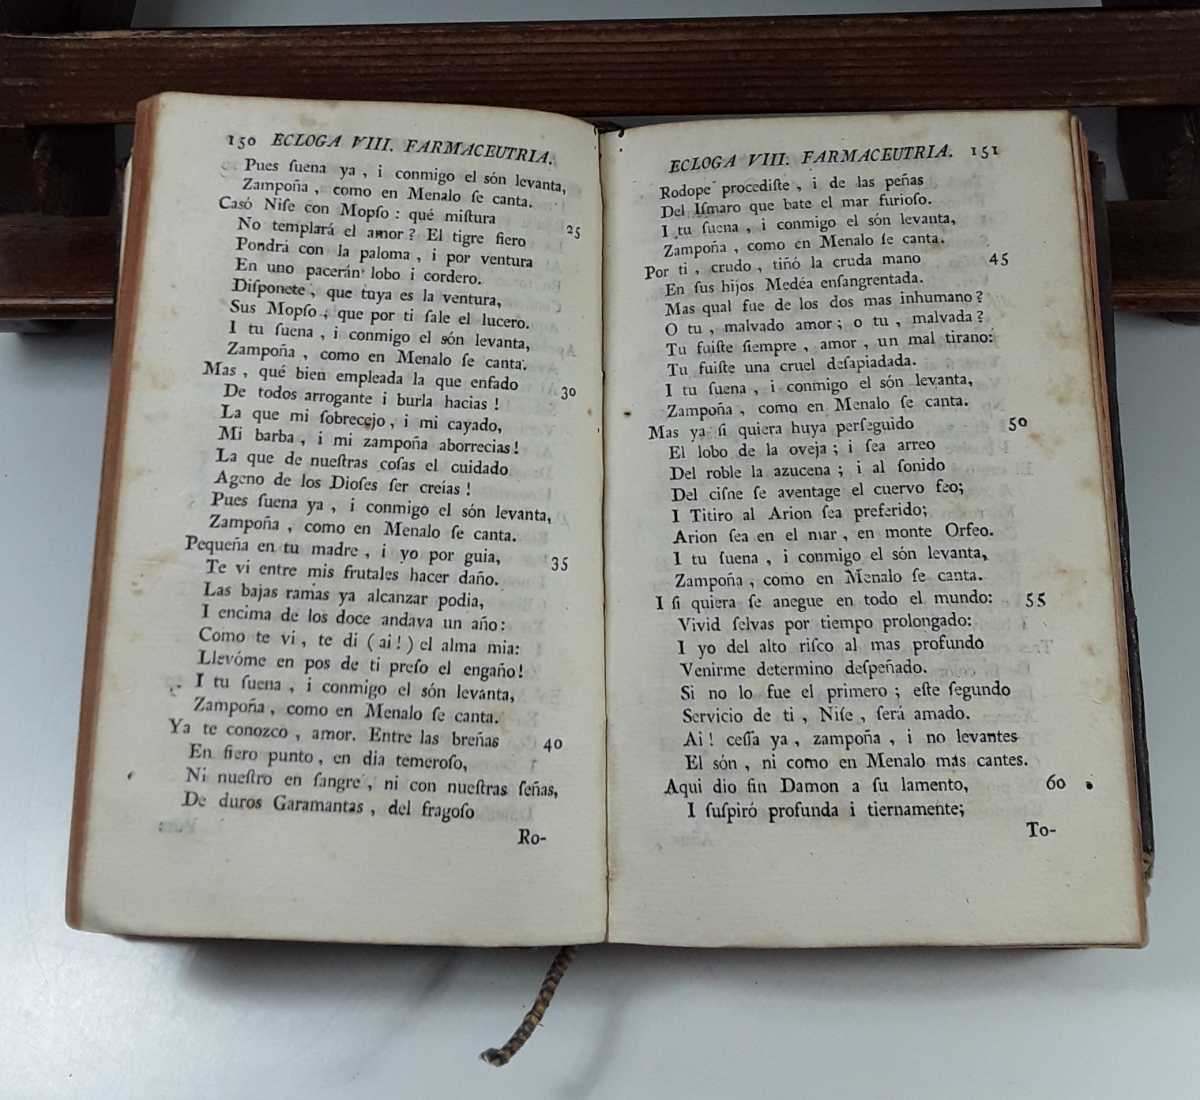 150 ECLOGA VIII. FARMACEUTRIA.
Pues ſuena ya, i conmigo el són levanta,
Zampoña, como en Menalo ſe canta.
Casó Niſe con Mopſo: qué miſtura 25
No templará el amor? El tigre fiero
Pondrá con la paloma, i por ventura
En uno pacerán lobo i cordero.
Diſponete, que tuya es la ventura,
Sus Mopſo, que por ti ſale el lucero.
I tu ſuena, i conmigo el són levanta,
Zampoña, como en Menalo ſe canta.
Mas, qué bien empleada la que enfado 30
De todos arrogante i burla hacias!
La que mi ſobrecejo, i mi cayado,
Mi barba, i mi zampoña aborrecias!
La que de nueſtras coſas el cuidado
Ageno de los Dioſes ſer creías!
Pues ſuena ya, i conmigo el són levanta,
Zampoña, como en Menalo ſe canta.
Pequeña en tu madre, i yo por guia, 35
Te vi entre mis frutales hacer daño.
Las bajas ramas ya alcanzar podia,
I encima de los doce andava un año:
Como te vi, te di (ai!) el alma mia:
Llevóme en pos de ti preſo el engaño!
I tu ſuena, i conmigo el són levanta,
Zampoña, como en Menalo ſe canta.
Ya te conozco, amor. Entre las breñas 40
En fiero punto, en dia temeroſo,
Ni nueſtro en ſangre, ni con nueſtras ſeñas,
De duros Garamantas, del fragoſo
Ro-
ECLOGA VIII. FARMACEUTRIA. 151
Rodope procediſte, i de las peñas
Del Iſmaro que bate el mar furioſo.
I tu ſuena, i conmigo el són levanta,
Zampoña, como en Menalo ſe canta.
Por ti, crudo, tiñó la cruda mano 45
En ſus hijos Medéa enſangrentada.
Mas qual fue de los dos mas inhumano?
O tu, malvado amor; o tu, malvada?
Tu fuiſte ſiempre, amor, un mal tirano:
Tu fuiſte una cruel deſapiadada.
I tu ſuena, i conmigo el són levanta,
Zampoña, como en Menalo ſe canta.
Mas ya ſi quiera huya perſeguido 50
El lobo de la oveja; i ſea arreo
Del roble la azucena; i al ſonido
Del ciſne ſe aventage el cuervo feo;
I Titiro al Arion ſea preferido;
Arion ſea en el mar, en monte Orfeo.
I tu ſuena, i conmigo el són levanta,
Zampoña, como en Menalo ſe canta.
I ſi quiera ſe anegue en todo el mundo: 55
Vivid ſelvas por tiempo prolongado:
I yo del alto riſco al mas profundo
Venirme determino deſpeñado.
Si no lo fue el primero; eſte ſegundo
Servicio de ti, Niſe, ſerá amado.
Ai! ceſſa ya, zampoña, i no levantes
El són, ni como en Menalo más cantes.
Aqui dio fin Damon a ſu lamento, 60
I ſuſpiró profunda i tiernamente;
To-